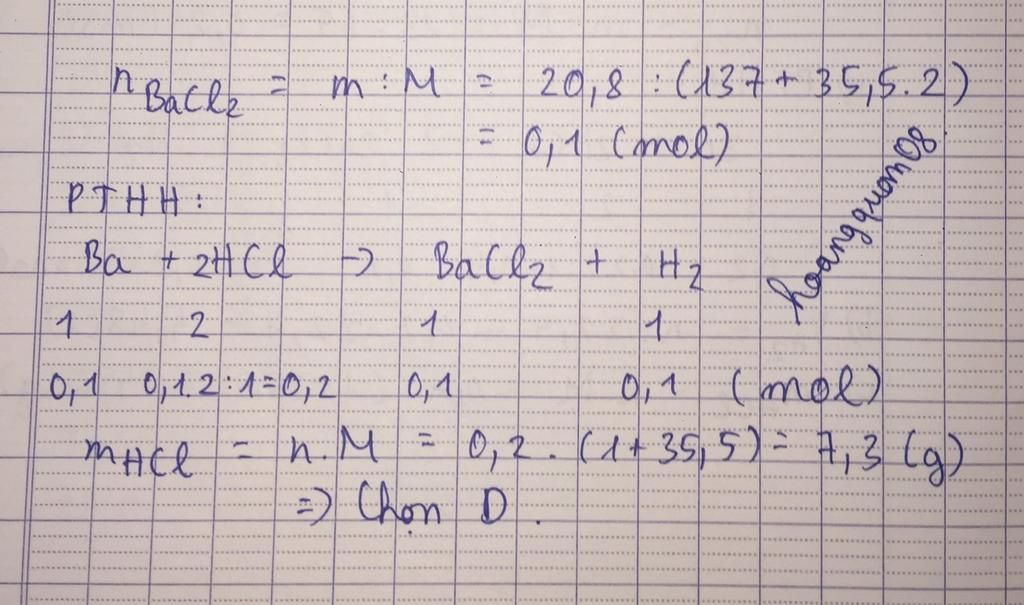 n BaCl2 = m : M = 20,8 : (137 + 35,5.2)
= 0,1 (mol)
hoangquan08
PTHH:
Ba + 2HCl → BaCl2 + H2
1 2 1 1
0,1 0,1.2:1=0,2 0,1 0,1 (mol)
mHCl = n.M = 0,2 . (1+35,5) = 7,3 (g)
=) Chọn D.